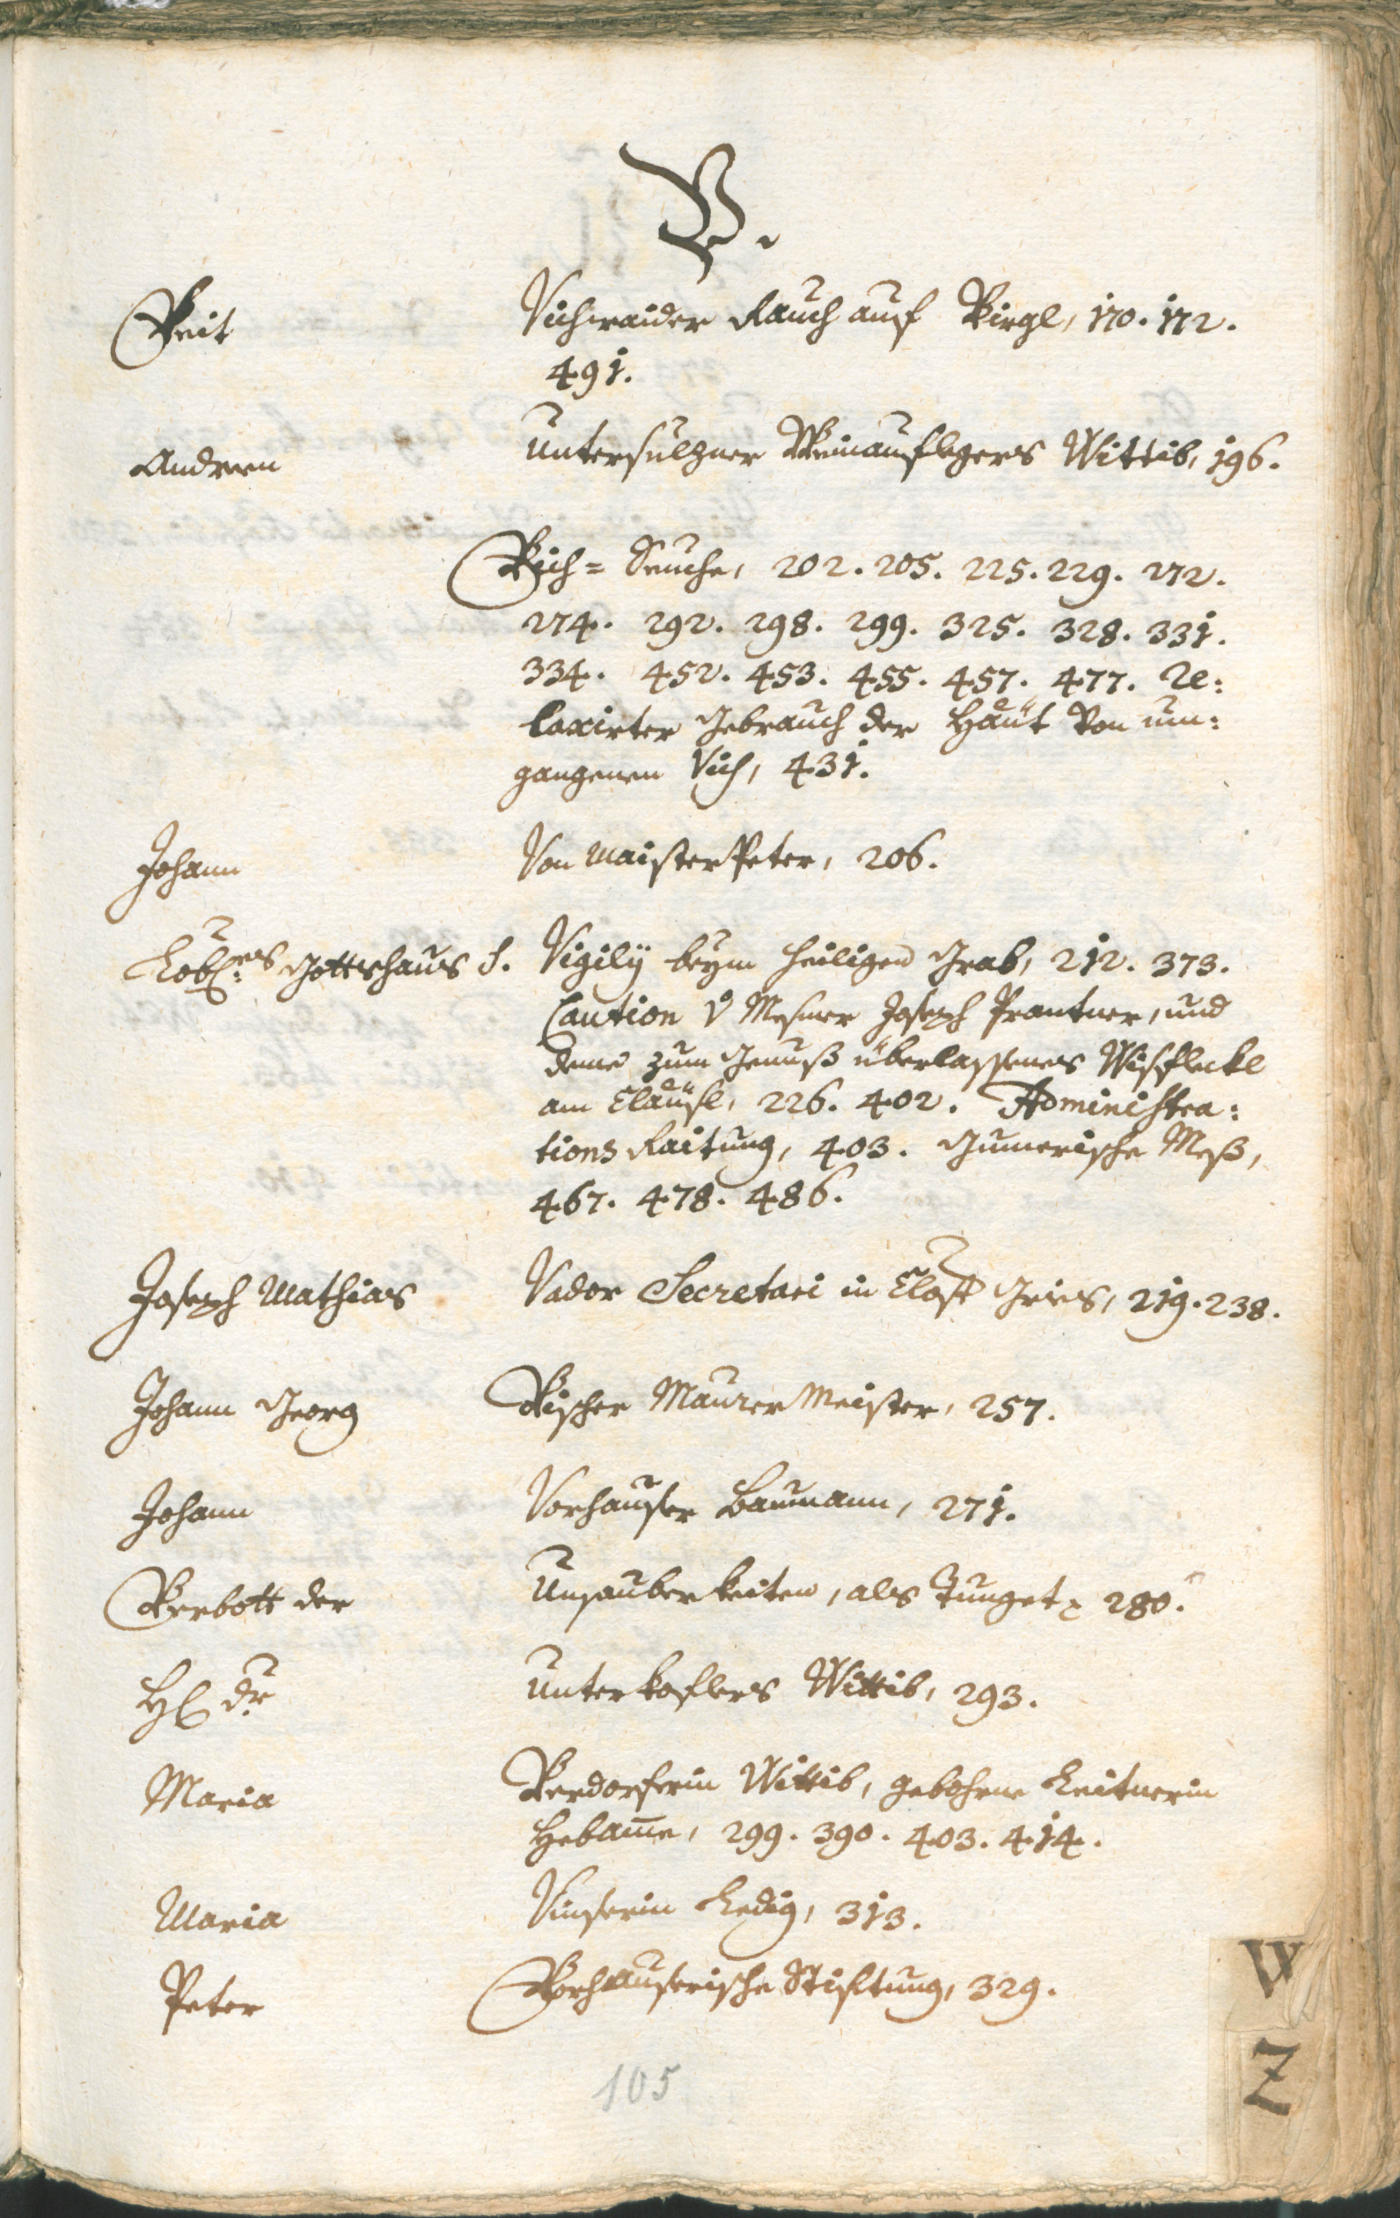 V.
Veit Vichwaider Rauch auf Virgl, 170. 172.
491.
Andreen Untersulzner Weinauflegers Wittib, 196.
Vich= Seuche, 202. 205. 225. 229. 272.
274. 292. 298. 299. 325. 328. 331.
334. 452. 453. 455. 457. 477. Re:
laxirter Gebrauch der Häüt von um:
gangenen Vich, 431.
Johann Von Maister Peter, 206.
Löbl: es Gottshaus S. Vigilÿ beÿm heiligen Grab, 212. 373.
Caution V Mesner Joseph Prantner, und
deme zum Genuß überlassenes Wisfleckl
am Cläüsl, 226. 402. Administra:
tions Raitung, 403. Gumerische Meß,
467. 478. 486.
Joseph Mathias Vador Secretari in Clost Gries, 219. 238.
Johann Georg Vischer Maurer Meister, 257.
Johann Vorhauser Baumann, 271.
Verbott der Unsauberkeiten, als Tunget 280.
H dr Unterkoflers Wittib, 293.
Maria Verdorferin Wittib, gebohrne Leitnerin
Hebame, 299. 390. 403. 414.
Maria Vinserin Ledig, 313.
Peter Vorhauserische Stiftung, 329.
W
Z
105